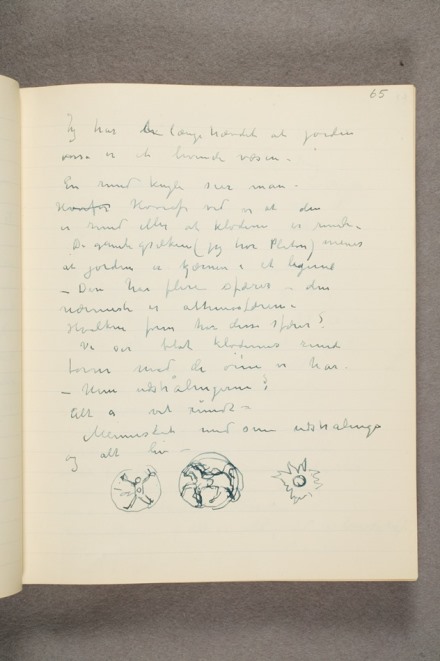 65
Jeg har længe at jorden
er et levende væsen.
En rund kugle sier man.
Hvorfor Hvoraf ved at den
er rund eller at kloderne er runde.
De gamle grækere (jeg tror Platon) menes
at jorden er kjernen i et legeme
– Den har flere sfærer – den
nærmeste er athmosfæren.
Hvilken form har disse sfærer?
Vi ser blot klodernes runde
former med de øine vi har.
– Men udstrålingerne?
Alt er vel rundt –
Mennesket med sine udstrålinger
og alt liv –